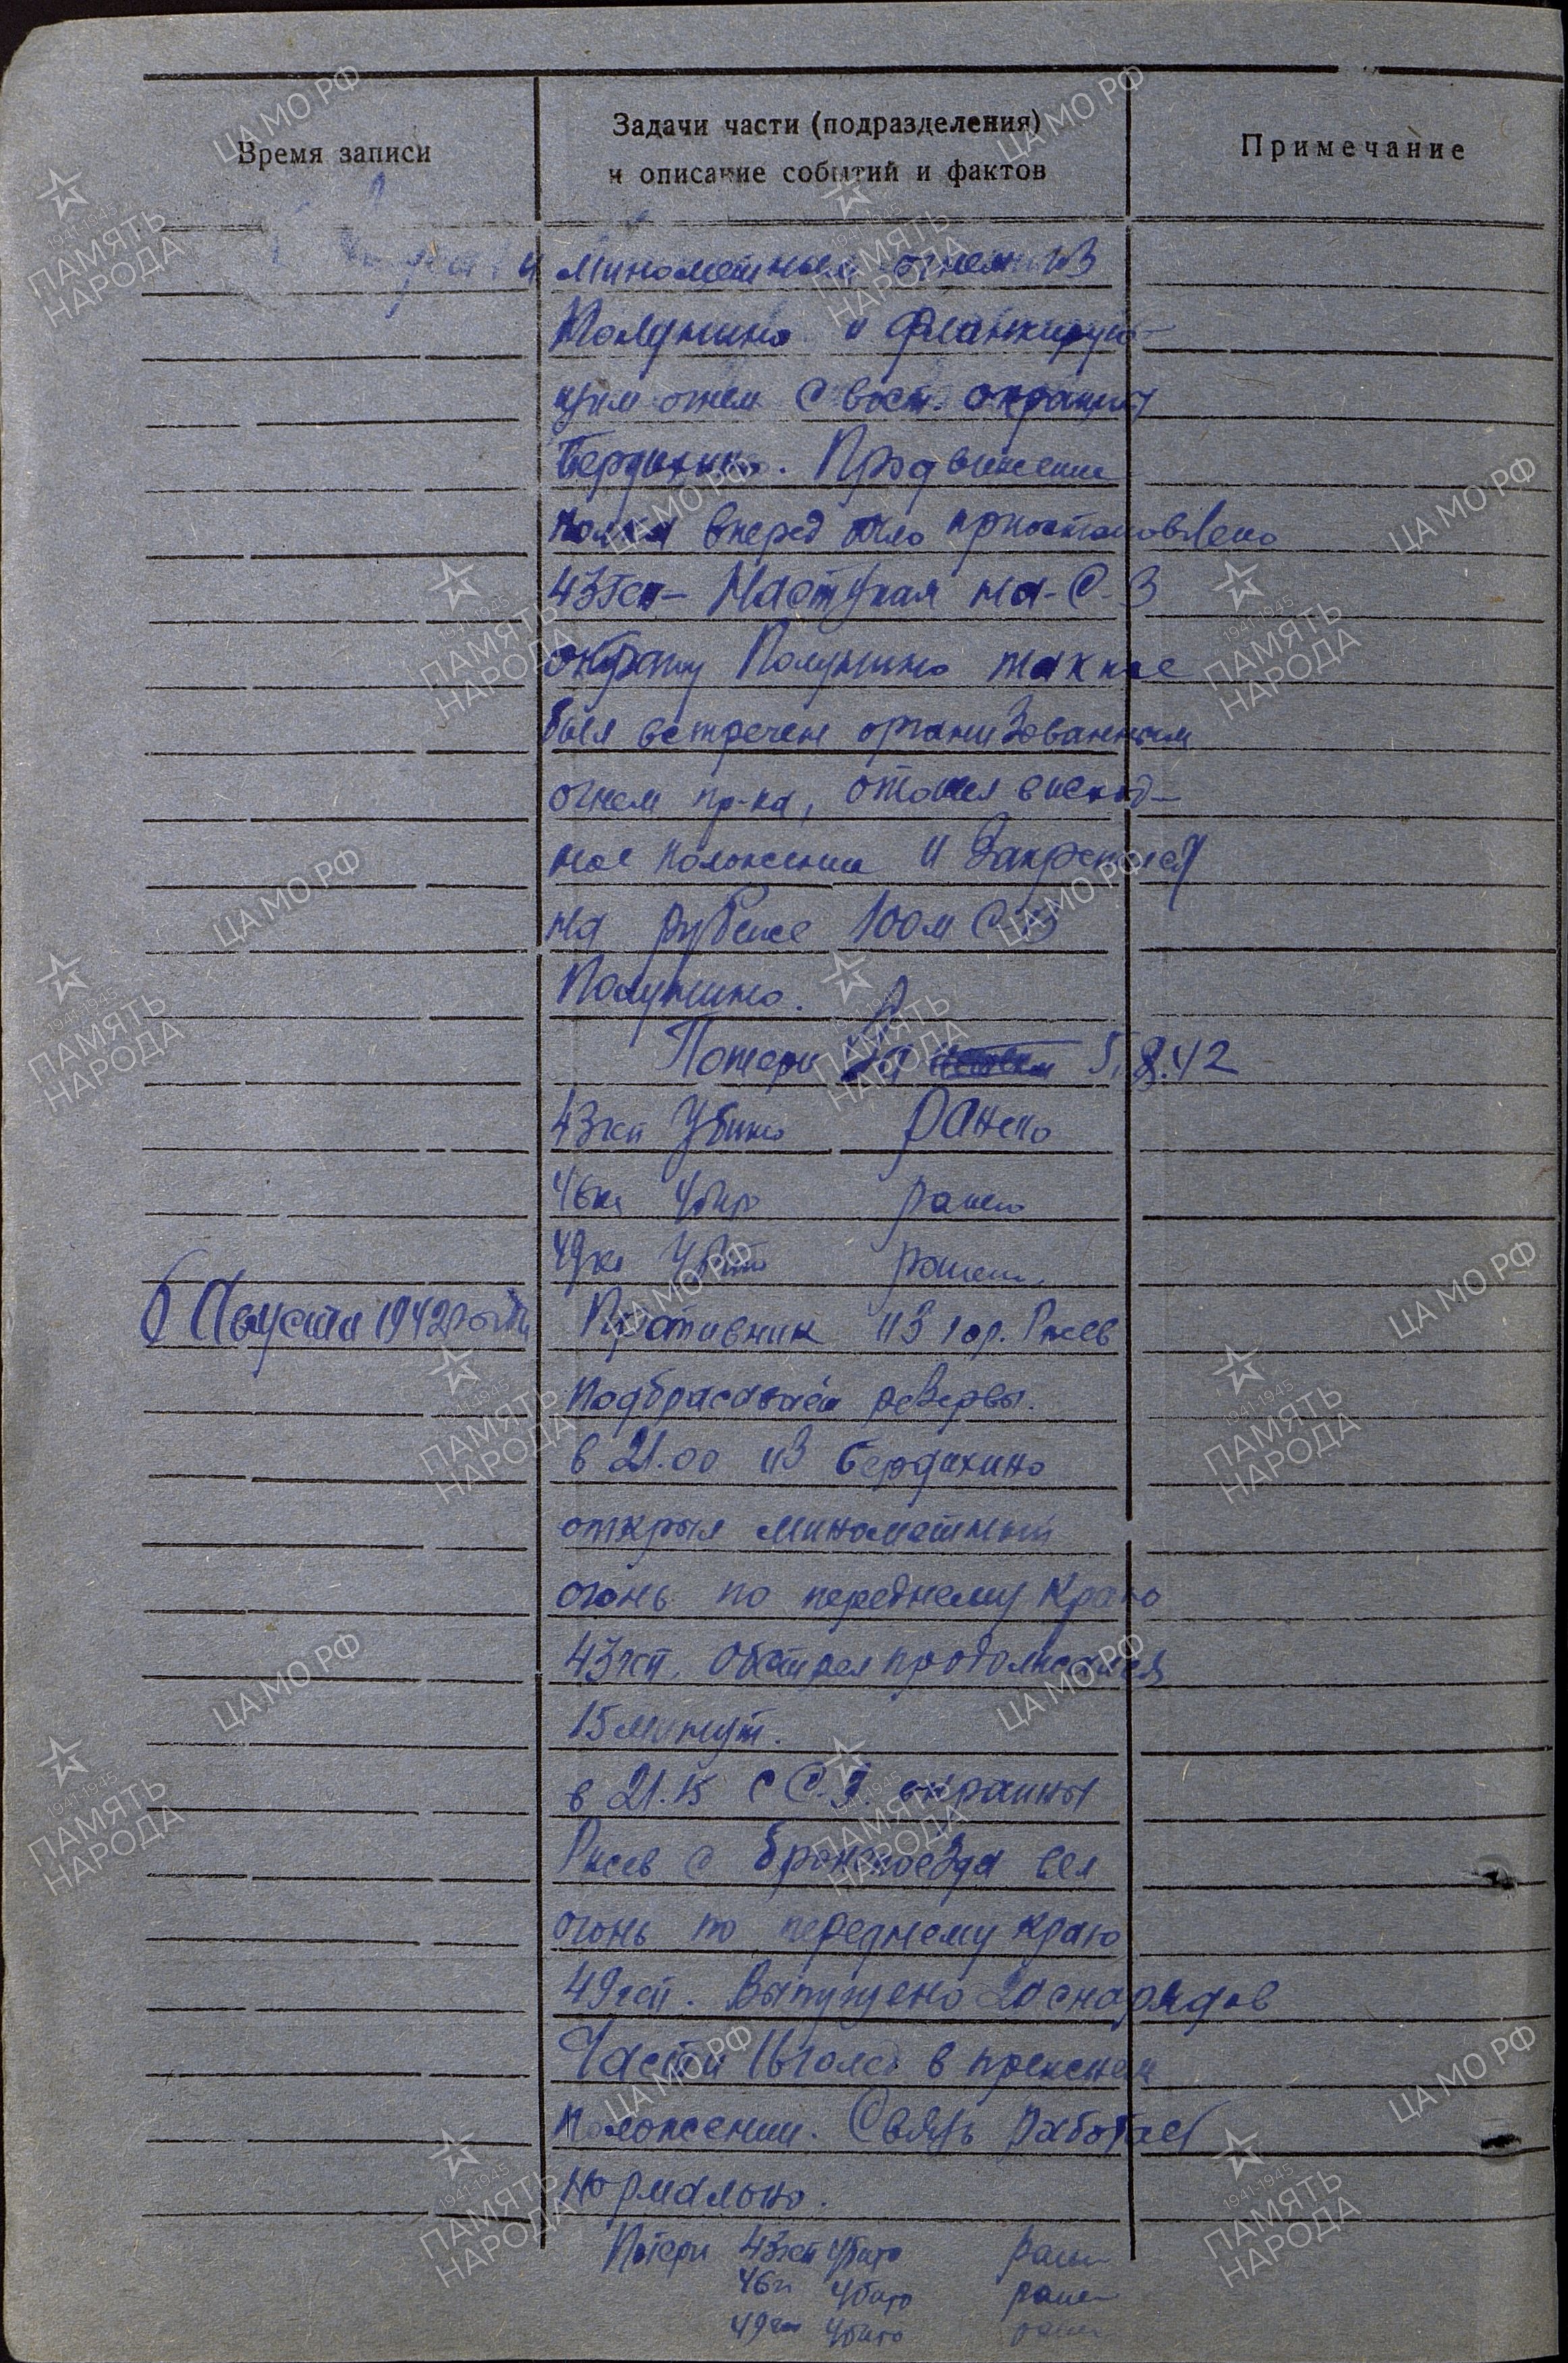 Время записи
Задачи части (подразделения)
и описание событий и фактов
Примечание
и минометным огнем из
Полунино и фланкирую-
щим огнем с вост. окраины
Бердихино. Продвижение
полка вперед было приостановлено
43гсп – Наступая на С-З
окраину Полунино также
был встречен организованным
огнем пр-ка, отошел в исход-
ное положении и закрепился
на рубеже 100м С-В
Полунино.
Потери за 5.8.42
43гсп Убито Ранено
46гсп Убито ранено
49гсп Убито ранено
6 Августа 1942 года
Противник из гор. Ржев
подбрасывает резервы.
в 21.00 из Бердихино
открыл минометный
огонь по переднему краю
43гсп. Обстрел продолжался
15 минут.
в 21.15 с С.З. окраины
Ржев с бронепоезда вел
огонь по переднему краю
49гсп. Выпущено 20 снарядов
Части в прежнем
положении. Связь работает
нормально.
Потери 43гсп убито ранен
46гсп убито ранен
49гсп убито ранен